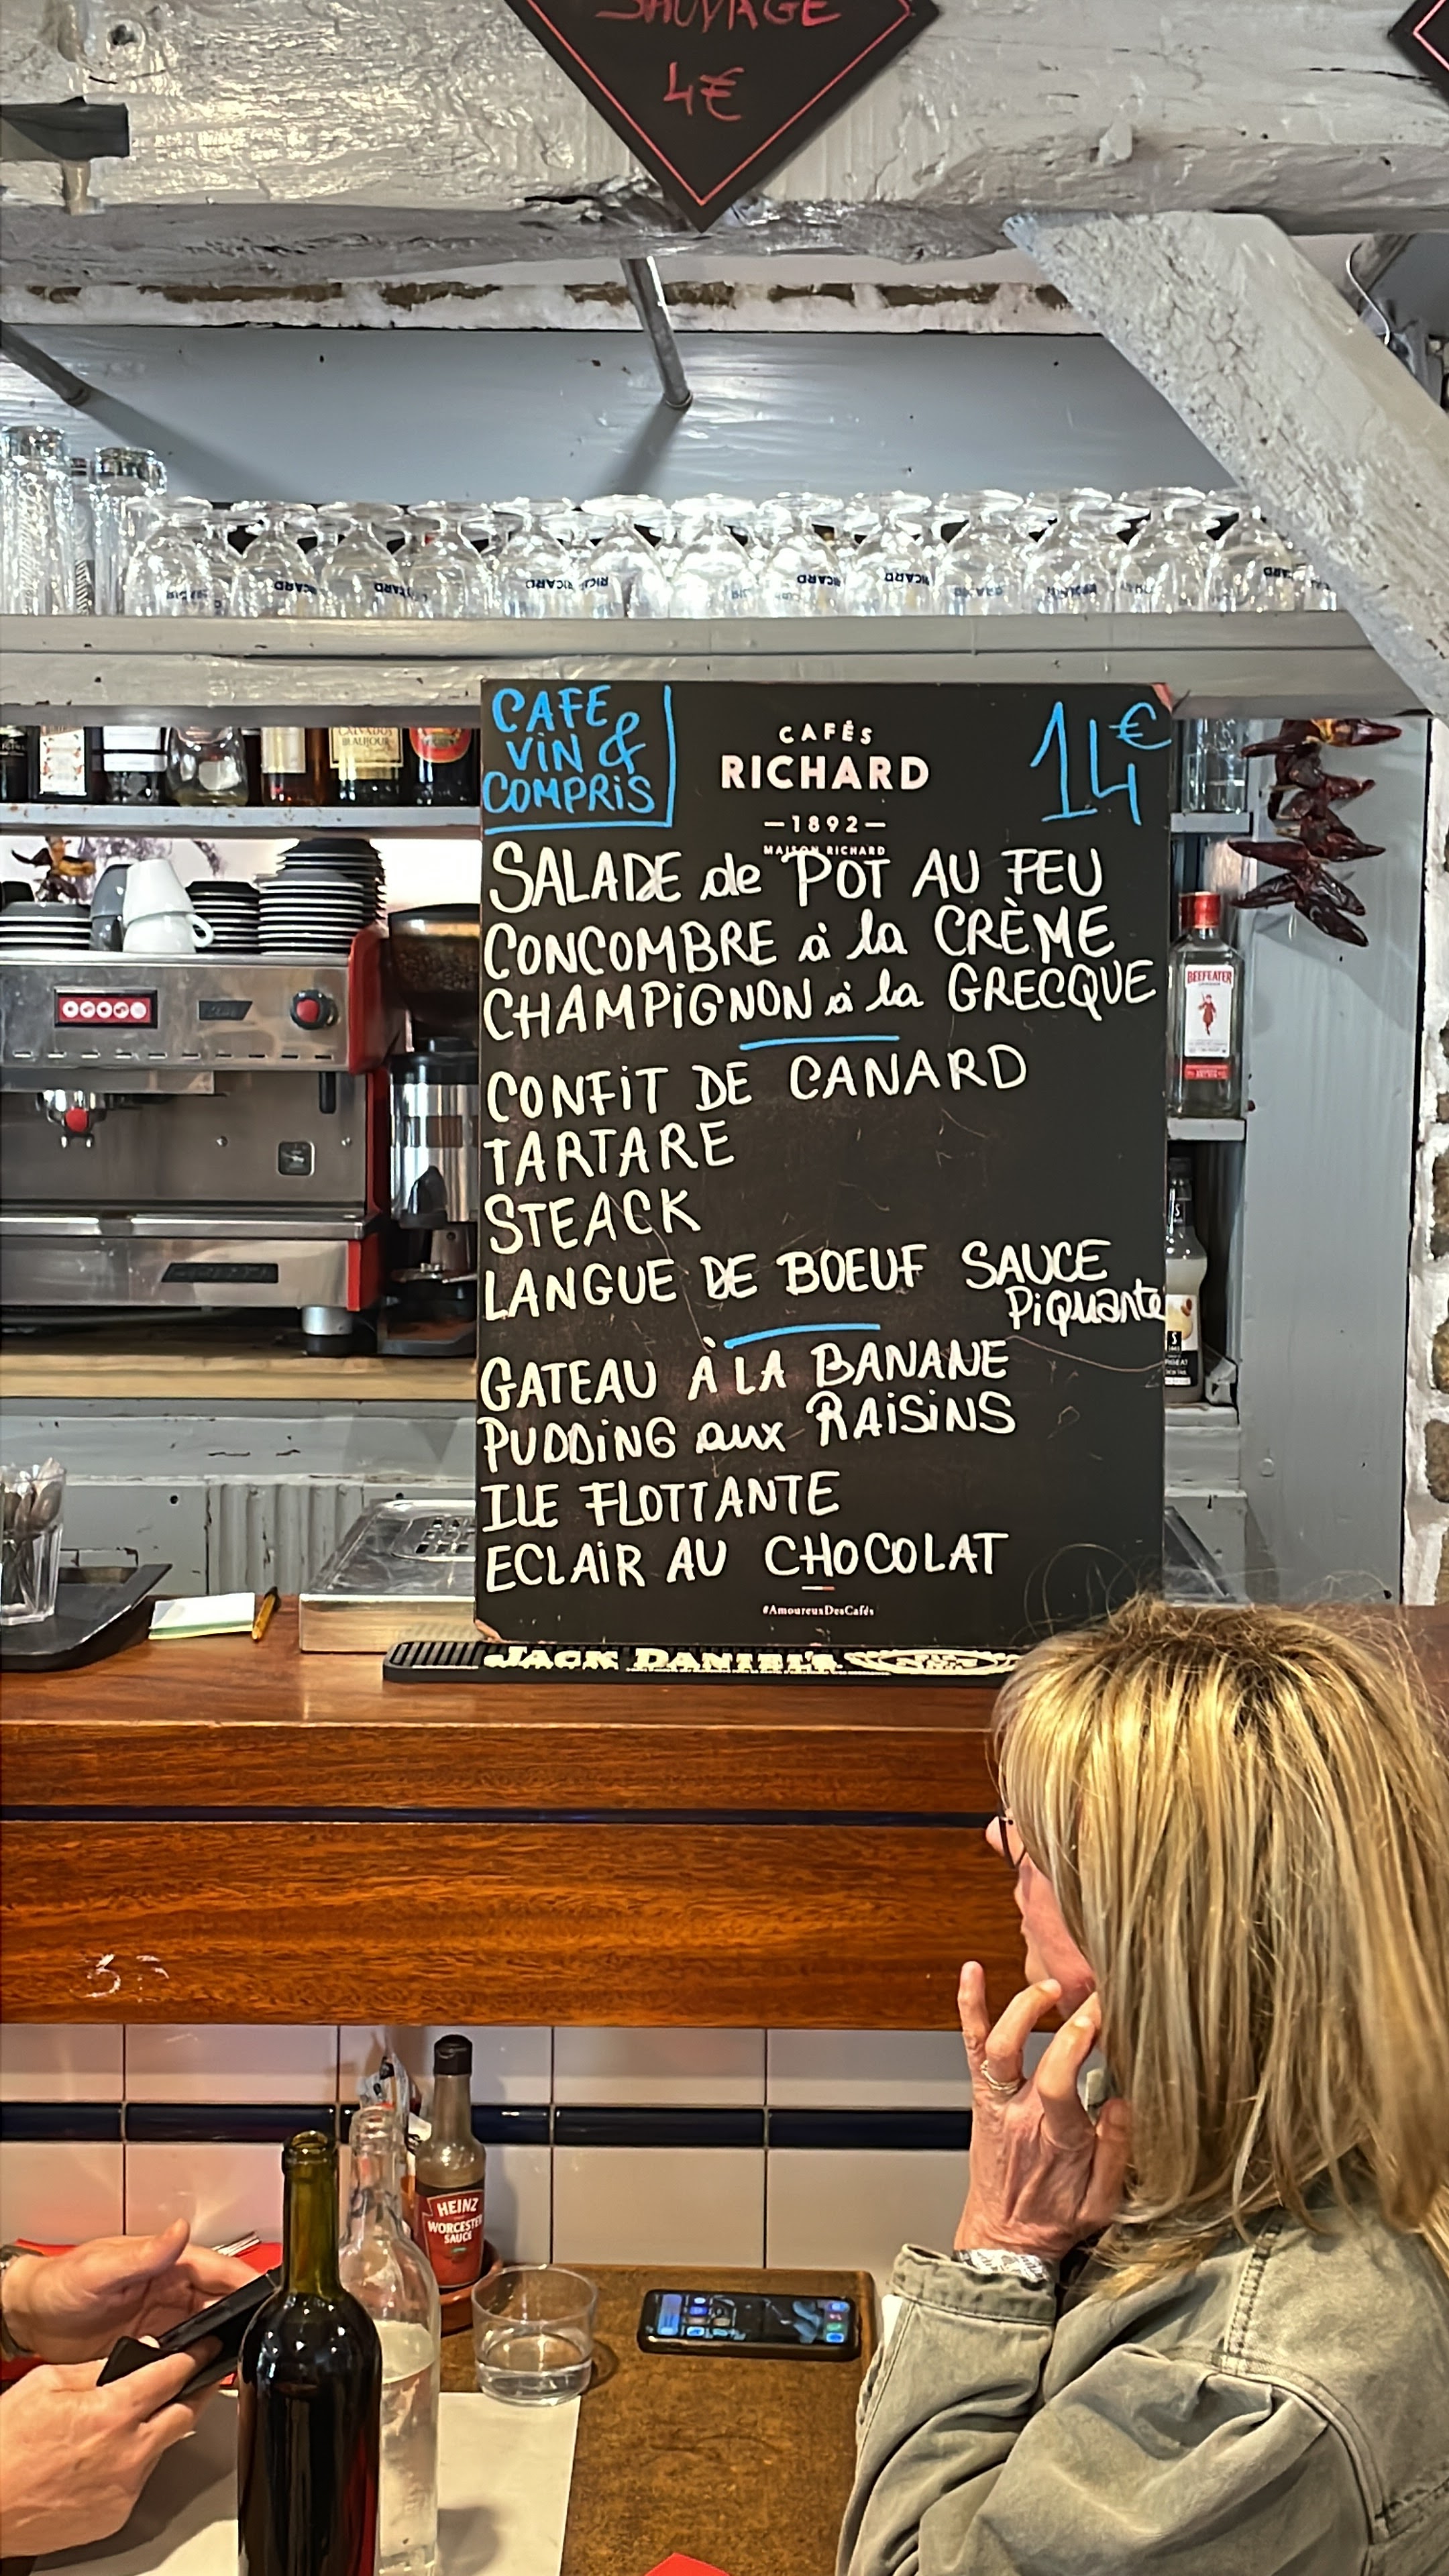 SAUVAGE
4€
CAFE
VIN &
COMPRIS
CAFÉS
RICHARD
1892
MAISON RICHARD
14€
SALADE de POT AU FEU
CONCOMBRE à la CRÈME
CHAMPIGNON à la GRECQUE
CONFIT DE CANARD
TARTARE
STEACK
LANGUE DE BOEUF SAUCE
Piquante
GATEAU À LA BANANE
PUDDING aux RAISINS
ILE FLOTTANTE
ECLAIR AU CHOCOLAT
#AmoureuxDesCafés
BEEFEATER
JACK DANIEL'S
HEINZ
WORCESTER
SAUCE